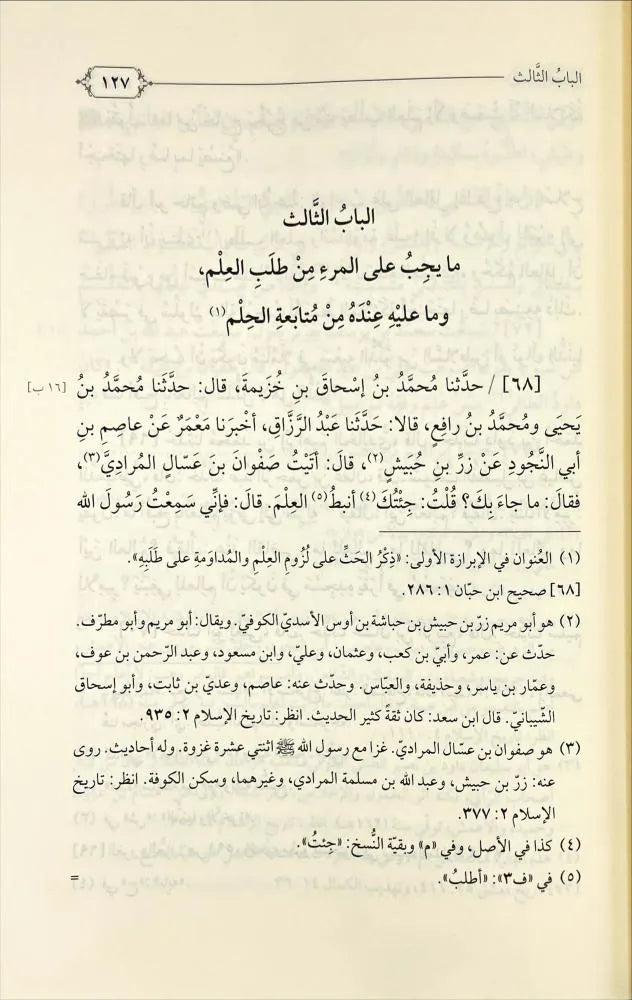 البابُ الثَّالث
١٢٧
البابُ الثَّالث
ما يجِبُ على المرءِ مِنْ طلَبِ العِلْم،
وما عليْهِ عِنْدَهُ مِنْ مُتابَعةِ الحِلْم(١)
[٦٨] / حدَّثنا مُحمَّدُ بنُ إسْحاقَ بنِ خُزَيمةَ، قال: حدَّثَنا مُحمَّدُ بنُ [١٦ ب]
يَحيَى ومُحمَّدُ بنُ رافِعٍ، قالا: حَدَّثَنا عَبْدُ الرَّزَّاقِ، أخْبَرَنا مَعْمَرٌ عَنْ عاصِمِ بنِ
أبي النَّجُودِ عَنْ زرِّ بنِ حُبَيشٍ(٢)، قال: أتَيْتُ صَفْوانَ بنَ عَسّالٍ المُرادِيَّ(٣)،
فقالَ: ما جاءَ بِكَ؟ قُلْتُ: جِئْتُكَ(٤) أنبطُ(٥) العِلْمَ. قالَ: فإنِّي سَمِعْتُ رَسُولَ الله
(١) العُنوان في الإبرازة الأولى: «ذِكْرُ الحَثِّ على لُزُومِ العِلْمِ والمُداوَمةِ على طَلَبِهِ».
[٦٨] صحيح ابن حبّان ١: ٢٨٦.
(٢) هو أبو مريم زرّ بن حبيش بن حباشة بن أوس الأسديّ الكوفيّ. ويقال: أبو مريم وأبو مطرّف.
حدّث عن: عمر، وأبيّ بن كعب، وعثمان، وعليّ، وابن مسعود، وعبد الرّحمن بن عوف،
وعمّار بن ياسر، وحذيفة، والعبّاس. وحدّث عنه: عاصم، وعديّ بن ثابت، وأبو إسحاق
الشّيبانيّ. قال ابن سعد: كان ثقةً كثير الحديث. انظر: تاريخ الإسلام ٢: ٩٣٥.
(٣) هو صفوان بن عسّال المراديّ. غزا مع رسول الله ﷺ اثنتي عشرة غزوة. وله أحاديث. روى
عنه: زرّ بن حبيش، وعبد الله بن مسلمة المرادي، وغيرهما، وسكن الكوفة. انظر: تاريخ
الإسلام ٢: ٣٧٧.
(٤) كذا في الأصل، وفي «م» وبقيّة النُّسخ: «جِئتُ».
(٥) في «ف٣»: «أطلبُ».
=